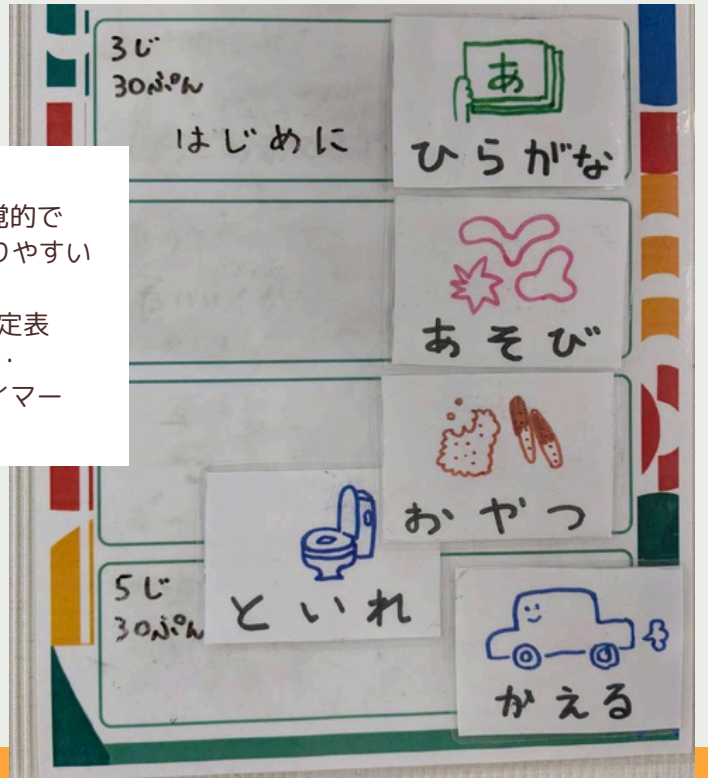 3じ
30ぷん
はじめに
あ
ひらがな
覚的で
りやすい
定表
・
イマー
あそび
おやつ
といれ
5じ
30ぷん
かえる